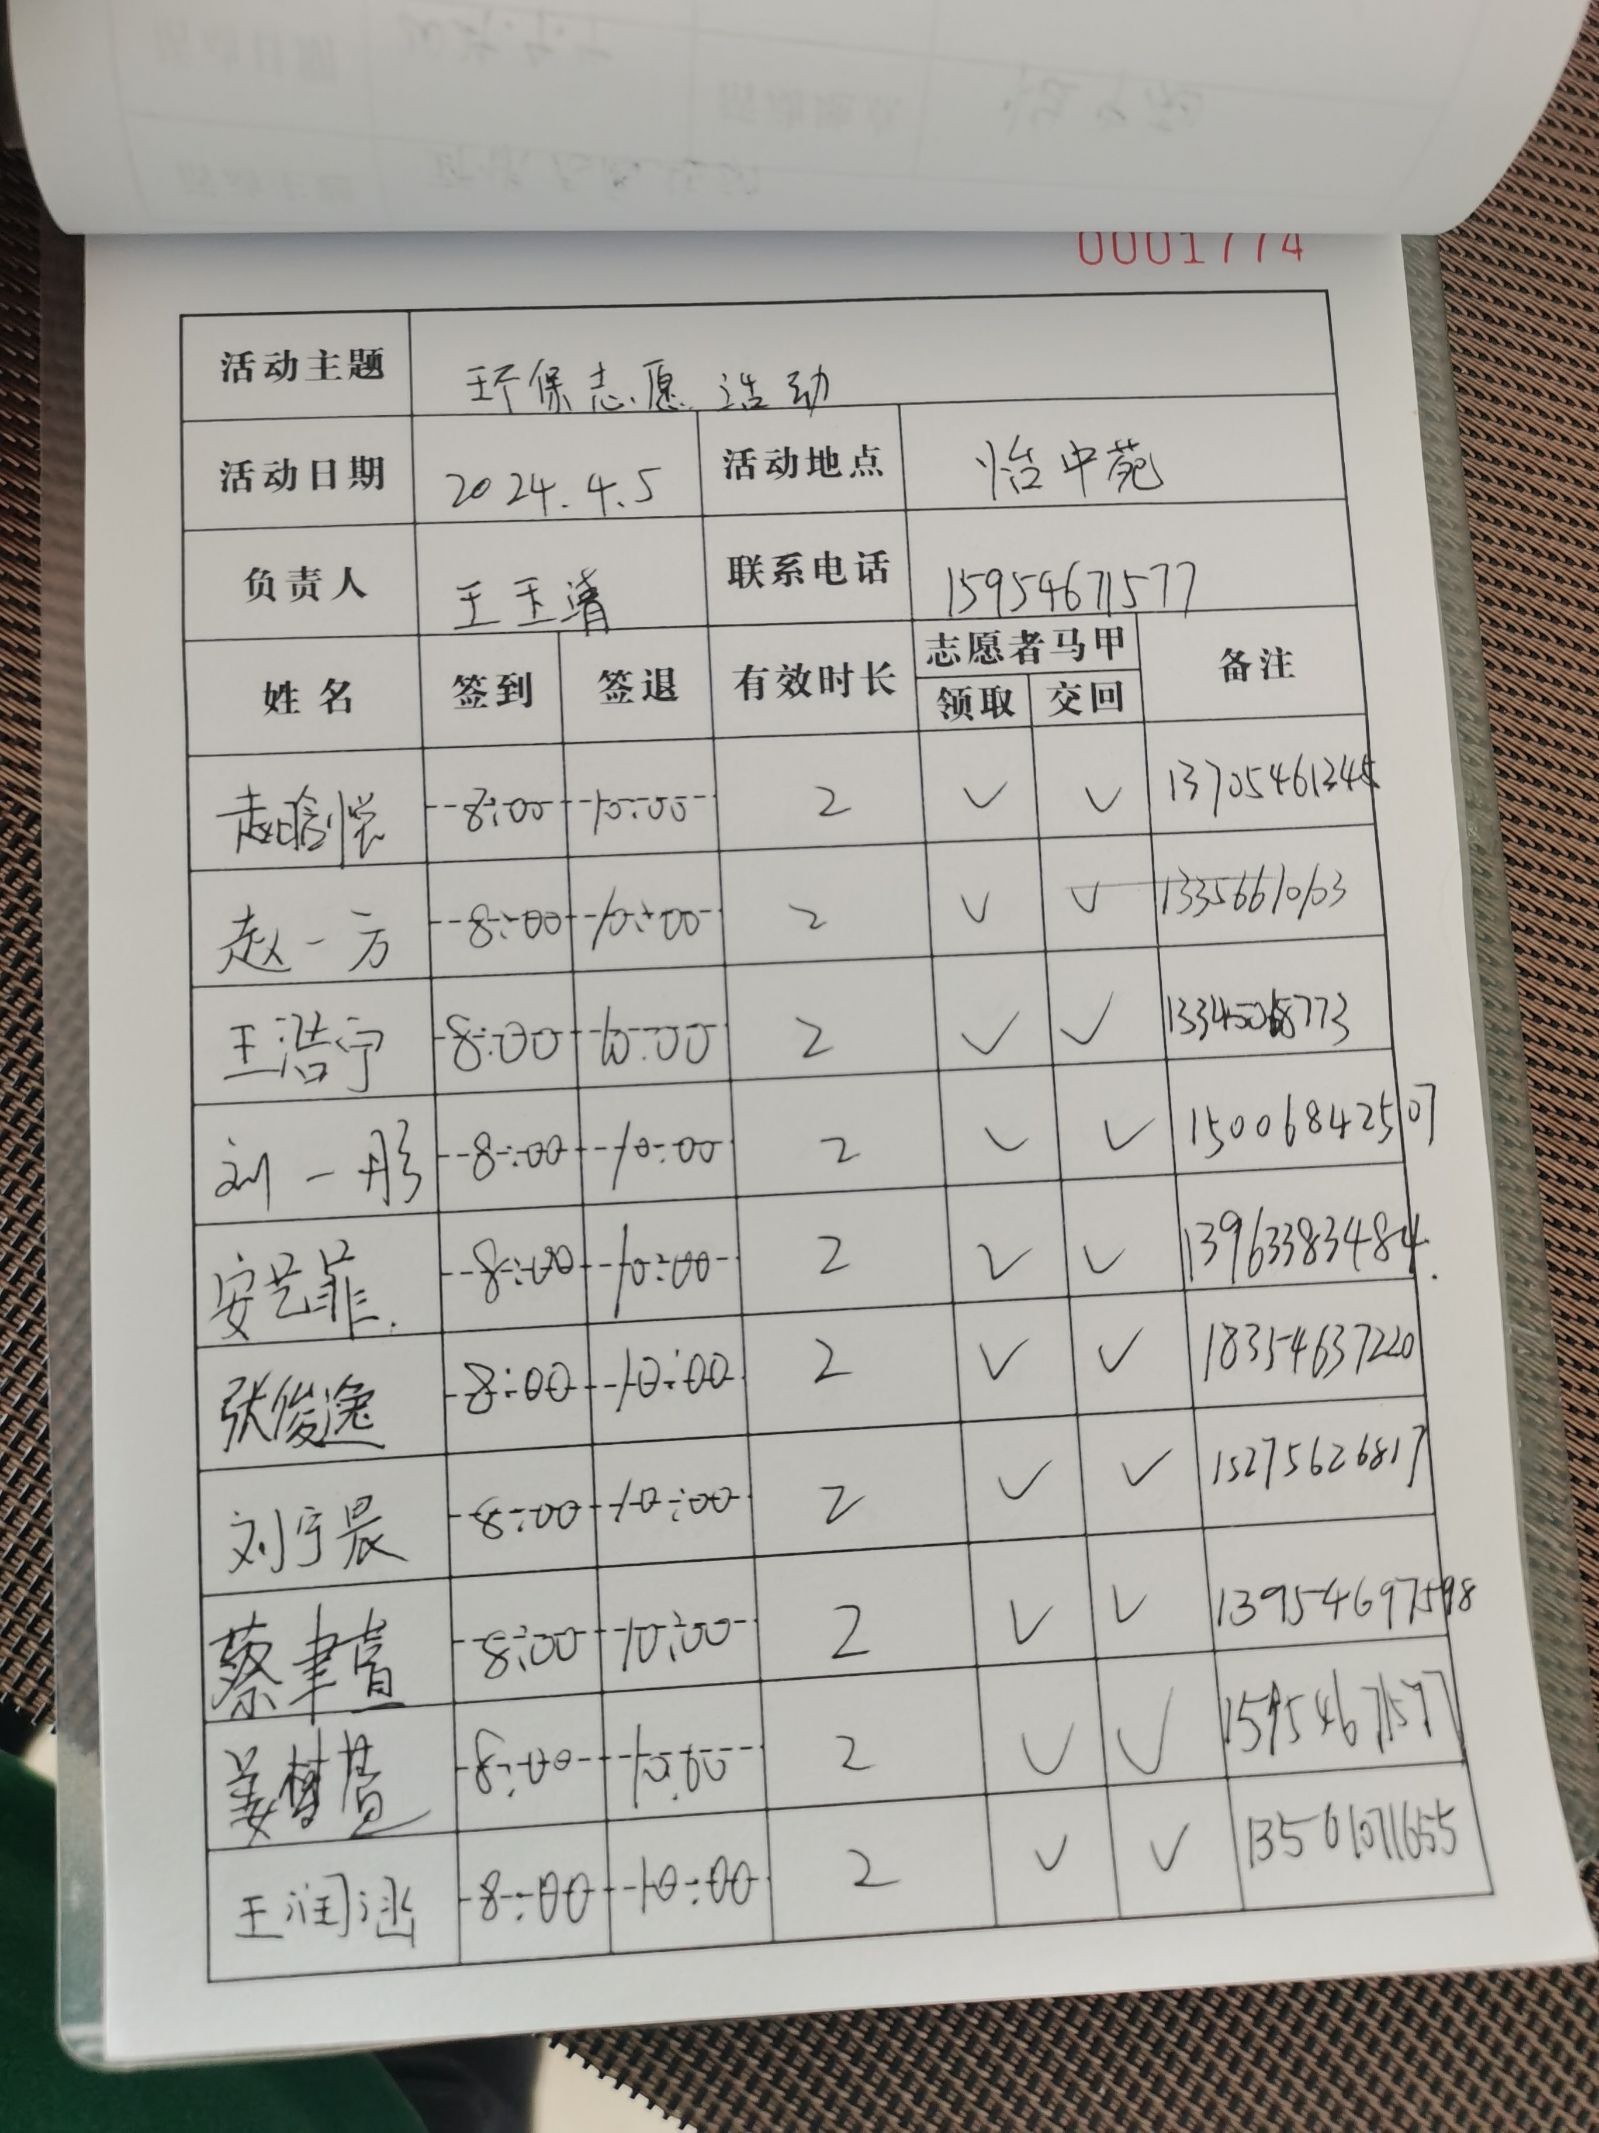 0001774
活动主题 环保志愿活动
活动日期 2024.4.5 活动地点 怡中苑
负责人 王玉清 联系电话 15954671577
姓名 签到 签退 有效时长 志愿者马甲 备注
领取 交回
赵晗悦 8:00 10:00 2 ✓ ✓ 13705461345
赵一方 8:00 10:00 2 ✓ ✓ 13356610103
王浩宁 8:00 10:00 2 ✓ ✓
刘一彤 8:00 10:00 2 ✓ ✓ 15006842507
安艺菲. 8:00 10:00 2 ✓ ✓ 13963383484.
张俊逸 8:00 10:00 2 ✓ ✓ 18354637220
刘宇晨 8:00 10:00 2 ✓ ✓ 15275626817
蔡聿萱 8:00 10:00 2 ✓ ✓ 13954697598
姜 8:00 10:00 2 ✓ ✓ 15954671577
王润涵 8:00 10:00 2 ✓ ✓ 13561071655